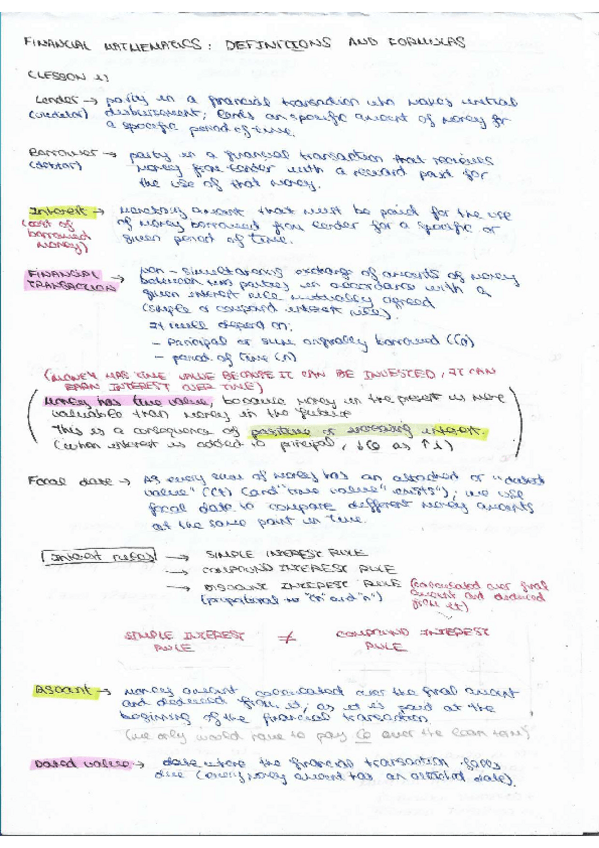 FINANCIAL MATHEMATICS: DEFINITIONS AND FORMULAS
(LESSON 1)
Lender → party in a financial transaction who makes initial
(creditor) disbursement; lends an specific amount of money for
a specific period of time.
Borrower → party in a financial transaction that receives
(debtor) money from lender with a reward paid for
the use of that money.
Interest → monetary amount that must be paid for the use
(cost of borrowed money) of money borrowed from lender for a specific or
given period of time.
FINANCIAL TRANSACTION → non-simultaneous exchange of amounts of money
between two parties in accordance with a
given interest rule mutually agreed
(simple or compound interest rule).
It will depend on:
- Principal or sum originally borrowed (C0)
- period of time (n)
(MONEY HAS TIME VALUE BECAUSE IT CAN BE INVESTED, IT CAN
EARN INTEREST OVER TIME)
Money has time value, because money in the present is more
valuable than money in the future
This is a consequence of positive or increasing interest.
(when interest is added to principal, ↓C0 as ↑i)
Focal date → As every sum of money has an attached or "dated
value" (Ct) (and "time value" exists"), we will use
focal date to compare different money amounts
at the same point in time.
Interest rules → SIMPLE INTEREST RULE
→ COMPOUND INTEREST RULE
→ DISCOUNT INTEREST RULE (calculated over final
(proportional to "Ct" and "n") amount and deduced
from it)
SIMPLE INTEREST RULE ≠ COMPOUND INTEREST RULE
Discount → money amount calculated over the final amount
and deduced from it, as it is paid at the
beginning of the financial transaction
(we only would have to pay C0 over the loan term)
Dated value → date where the financial transaction falls
due (every money amount has an attached date).